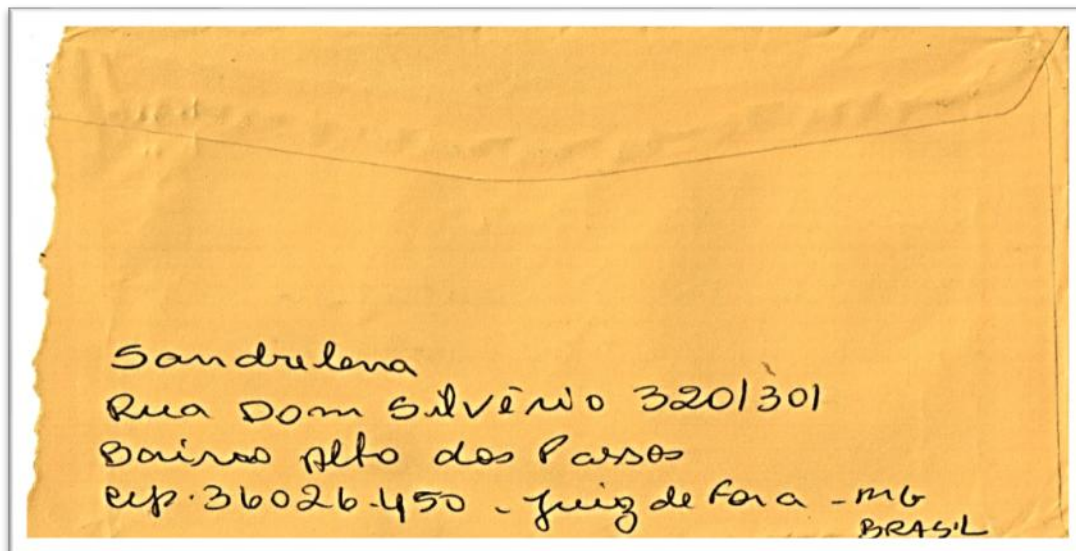 Sandrelena
Rua Dom Silvério 320/301
Bairro Alto dos Passos
cep. 36026-450 - Juiz de Fora - MG
BRASIL